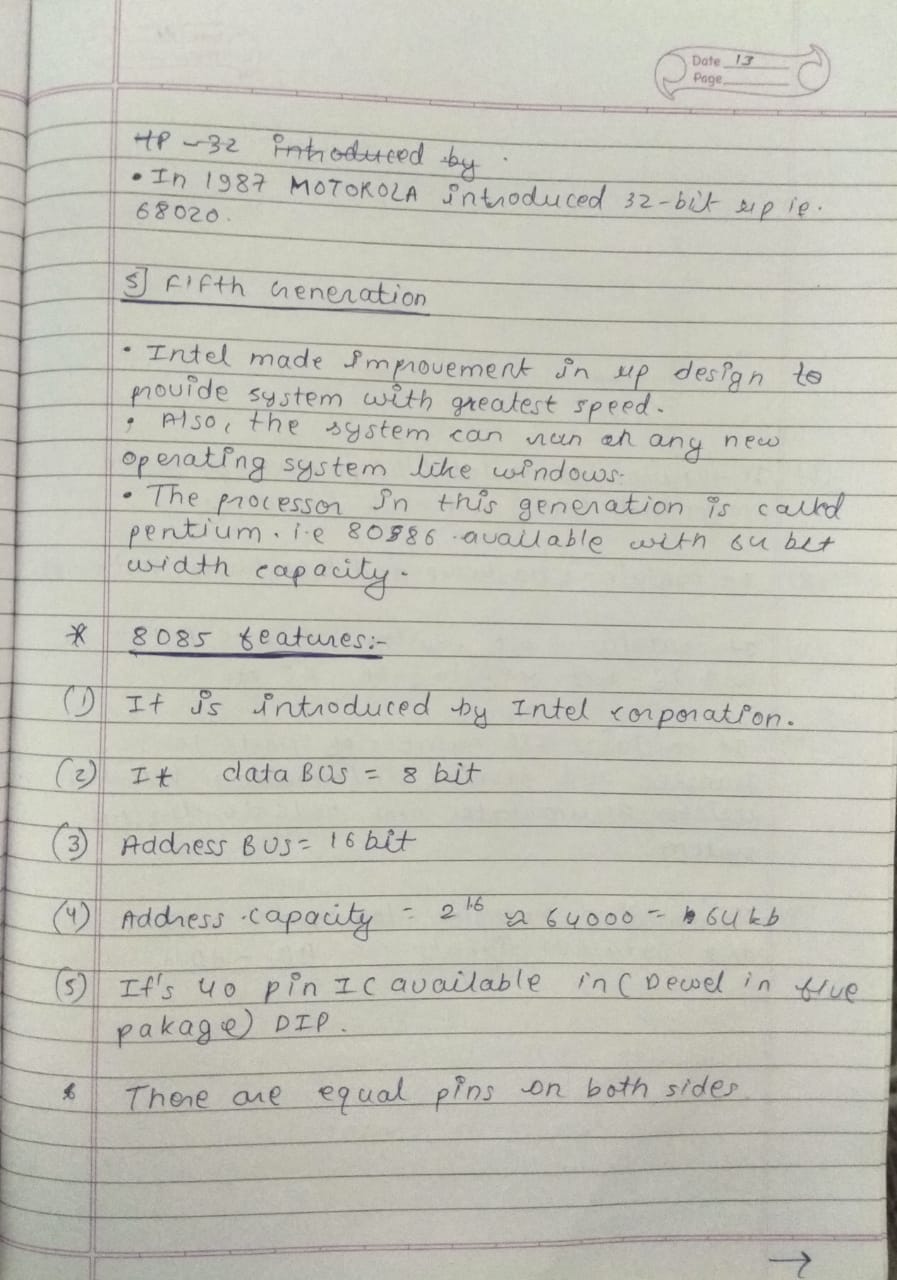 Date 13
Page
HP-32 introduced by.
• In 1987 MOTOROLA introduced 32-bit μp ie.
68020.
5] Fifth Generation
• Intel made improvement in μp design to
provide system with greatest speed.
• Also, the system can run on any new
operating system like windows.
• The processor in this generation is called
pentium. i.e 80586 available with 64 bet
width capacity.
* 8085 features:-
(1) It is introduced by Intel corporation.
(2) It data BUS = 8 bit
(3) Address BUS = 16 bit
(4) Address capacity = 2^16 ≈ 64000 = 64 kb
(5) It's 40 pin IC available in (Dewel in
pakage) DIP.
There are equal pins on both sides
→